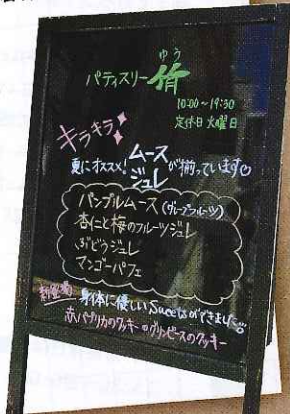 ゆう
パティスリー 侑
10:00～19:30
定休日 火曜日
キラキラ
夏にオススメ! ムース ジュレ が揃っています
パンプルムース (グレープフルーツ)
杏仁と梅のフルーツジュレ
ぶどうジュレ
マンゴーパフェ
新登場 身体に優しいSweetsができました
赤パプリカのクッキー グリンピースのクッキー